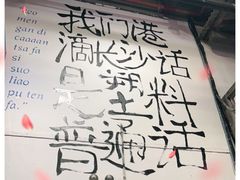 "wo
men
gan di
caaaan
tsa fa
si
suo
liao
pu ten
fa."
我们港
滴长沙话
是塑料
普通话